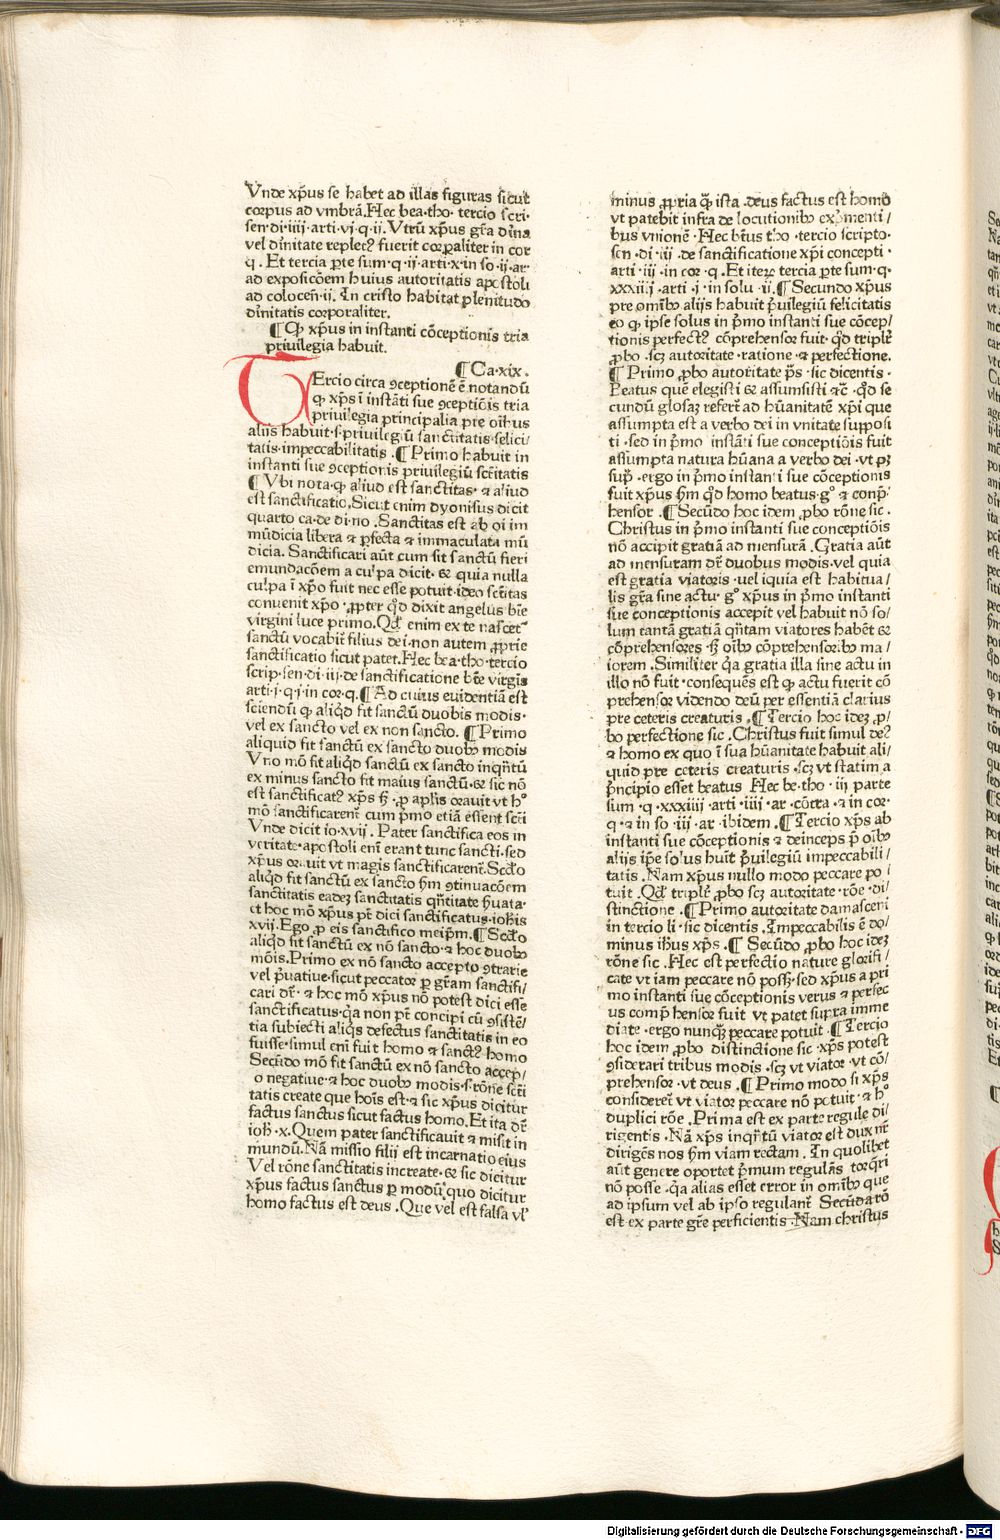 Vnde xp̄us se habet ad illas figuras sicut
corpus ad vmbrā.Hec bea.tho. tercio scri-
sen.di.iiii.arti.vj.q.ij.Vtrū xp̄us gr̄a diīna
vel diīnitate replet᷒ fuerit corꝑaliter in cor
q. Et tercia ꝑte sum.q.ij.arti.x.in so.ij.ar.
ad exposicōem huius autoritatis apostoli
ad colocen.ij. In cristo habitat plenitudo
diīnitatis corporaliter.
¶Qꝫ xp̄us in instanti cōceptionis tria
priuilegia habuit.
¶Ca.xix.
TErcio circa ꝯceptionē ē notandū
ꝙ xp̄s ī instāti sue ꝯceptiōis tria
priuilegia principalia pre oībus
aliis habuit.s.priuilegiū sanctitatis.felici
tatis.impeccabilitatis.¶Primo habuit in
instanti sue ꝯceptionis priuilegiū sctītatis
¶Vbi nota.ꝙ aliud est sanctitas. ⁊ aliud
est sanctificatio.Sicut enim dyonisius dicit
quarto ca.de di.no.Sanctitas est ab oī im
mūdicia libera ⁊ ꝑfecta ⁊ immaculata mū
dicia. Sanctificari aūt cum sit sanctū fieri
emundacōem a culpa dicit. & quia nulla
culpa ī xp̄o fuit nec esse potuit.ideo sctītas
conuenit xp̄o.ꝓpter qđ dixit angelus bt̄e
virgini luce primo.Qđ enim ex te nascet᷑
sanctū vocabit᷑ filius dei.non autem ꝓprie
sanctificatio sicut patet.Hec bea.tho.tercio
scrip.sen.di.iij.de sanctificatione bt̄e virgīs
arti.j.q.j.in cor.q.¶Ad cuius euidentiā est
sciendū ꝙ aliqđ fit sanctū duobis modis.
vel ex sancto vel ex non sancto. ¶Primo
aliquid fit sanctū ex sancto duobꝫ modis
Vno mō fit aliqđ sanctū ex sancto inqn̄tū
ex minus sancto fit maius sanctū.& sic nō
est sanctificat᷒ xp̄s sꝫ .ꝓ apl̄is orauit vt hͦ
mō sanctificarent᷑ cum pͥmo etiā essent sctī
Vnde dicit io.xvij. Pater sanctifica eos in
veritate.apostoli enī erant tunc sancti.sed
xp̄us orauit vt magis sanctificarent᷑.Scđo
aliqđ fit sanctū ex sancto ẜm ꝯtinuacōem
sanctitatis eadeꝫ sanctitatis qn̄titate ẜuata.
et hoc mō xp̄us pt̄ dici sanctificatus.ioh̄is
xvij.Ego ꝓ eis sanctifico meip̄m.¶Scđo
aliqđ fit sanctū ex nō sancto.⁊ hoc duobꝫ
mōis.Primo ex nō sancto accepto ꝯtrarie
vel pͥuatiue.sicut peccator ꝑ gr̄am sanctifi/
cari dr̄. ⁊ hoc mō xp̄us nō potest dici esse
sanctificatus.qꝛ non pt̄ concipi cū ꝯsistē/
tia subiecti aliqͥs defectus sanctitatis in eo
fuisse.simul enī fuit homo ⁊ sanct᷒.homo
Secūdo mō fit sanctū ex nō sancto accep/
o negatiue.⁊ hoc duobꝫ modis.s.rōne sctī
tatis create que hoīs est.⁊ sic xp̄us dicitur
factus sanctus sicut factus homo.Et ita dr̄
ioh̄.x.Quem pater sanctificauit ⁊ misit in
mundū.Nā missio filij est incarnatio eius
Vel rōne sanctitatis increate.& sic dicitur
xp̄us factus sanctus ꝑ modū quo dicitur
homo factus est deus.Que vel est falsa vl̓
minus ꝓpria qͣꝫ ista .deus factus est homo
vt patebit infra de locutionibꝫ expͥmenti/
bus vnionē.Hec bt̄us tho.tercio scripto.
sen.di.iij.de sanctificatione xp̄i concepti.
arti.iij.in cor.q. Et iteꝝ tercia ꝑte sum.q.
xxxiiij.arti.j.in solu.ij.¶Secundo xp̄us
pre omībꝫ alijs habuit pͥuilegiū felicitatis
eo ꝙ ipse solus in pͥmo instanti sue cōcep/
tionis perfect᷒ cōprehensor fuit.qđ triplr̄
ꝓbo.scꝫ autoritate.ratione.⁊ perfectione.
¶Primo ꝓbo autoritate pͥs.sic dicentis.
Beatus quē elegisti & assumsisti ⁊c̄.qđ se
cundū glosaꝫ refert᷑ ad hūanitatē xp̄i que
assumpta est a verbo dei in vnitate supposi
ti.sed in pͥmo instāti sue conceptiōis fuit
assumpta natura hūana a verbo dei.vt pꝫ
supͣ.ergo in pͥmo instanti sue cōceptionis
fuit xp̄us ẜm qđ homo beatus.gͦ ⁊ conpͥ
hensor.¶Secūdo hoc idem ꝓbo rōne sic.
Christus in pͥmo instanti sue conceptiōis
nō accipit gratiā ad mensurā.Gratia aūt
ad mensuram dr̄ duobus modis.vel quia
est gratia viatoris.uel iquia est habitua/
lis gr̄a sine actu.gͦ xp̄us in pͥmo instanti
sue conceptionis accepit vel habuit nō so/
lum tantā gratiā qn̄tam viatores habēt &
cōprehensores.sꝫ oībꝫ cōprehensoribꝫ ma/
iorem.Similiter qꝛ gratia illa sine actu in
illo nō fuit.consequēs est ꝙ actu fuerit cō
prehensor videndo deū per essentiā clarius
pre ceteris creaturis.¶Tercio hoc ideꝫ ꝓ/
bo perfectione sic.Christus fuit simul de᷒
⁊ homo ex quo ī sua hūanitate habuit ali/
quid pre ceteris creaturis.scꝫ vt statim a
pͥncipio esset beatus Hec be.tho.iij parte
sum.q.xxxiiij.arti.iiij.ar.cōtra.⁊ in cor.
q.⁊ in so.iij.ar.ibidem.¶Tercio xp̄s ab
instanti sue cōceptionis ⁊ deinceps pͥ oībꝫ
alijs ip̄e solus huīt pͥuilegiū impeccabili/
tatis.Nam xp̄us nullo modo peccare po/
tuit.Qđ triplr̄ ꝓbo scꝫ autoritate.rōe.di/
stinctione.¶Primo autoritate damasceni
in tercio li.sic dicentis.Impeccabilis ē do/
minus ih̄us xp̄s.¶Secūdo ꝓbo hoc ideꝫ
rōne sic.Hec est perfectio nature glorifi/
cate vt iam peccare nō possꝫ.sed xp̄us a pri
mo instanti sue cōceptionis verus ⁊ perfec
us comp̄hensor fuit vt patet supra imme
diate.ergo nunqͣꝫ peccare potuit.¶Tercio
hoc idem ꝓbo distinctione sic.xp̄s potest
ꝯsiderari tribus modis.scꝫ vt viator.vt cō/
prehensor.vt deus.¶Primo modo si xp̄s
consideret᷑ vt viator peccare nō potuit.⁊ hͦ
duplici rōe.Prima est ex parte regule di/
rigentis.Nā xp̄s inqn̄tū viator est dux nr̄
dirigēs nos ẜm viam rectam.In quolibet
aūt genere oportet pͥmum regulās torqͥri
nō posse.qꝛ alias esset error in omībꝫ que
ad ipsum vel ab ipso regulant᷑ Secūda rō
est ex parte gr̄e perficientis.Nam christus
Digitalisierung gefördert durch die Deutsche Forschungsgemeinschaft - DFG